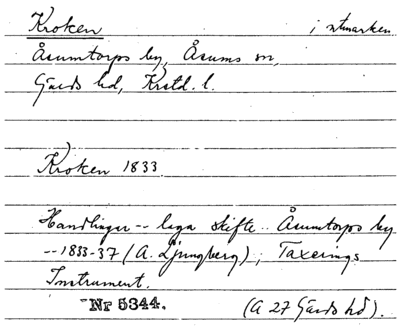 Kroken i utmarken
Åsumtorps by, Åsums sn,
Gärds hd, Krstd. l.
Kroken 1833
Handlingar -- laga skifte .. Åsumtorps by
-- 1833-37 (A. Ljungberg); Taxerings
Instrument.
Nr 5344. (A 27 Gärds hd).